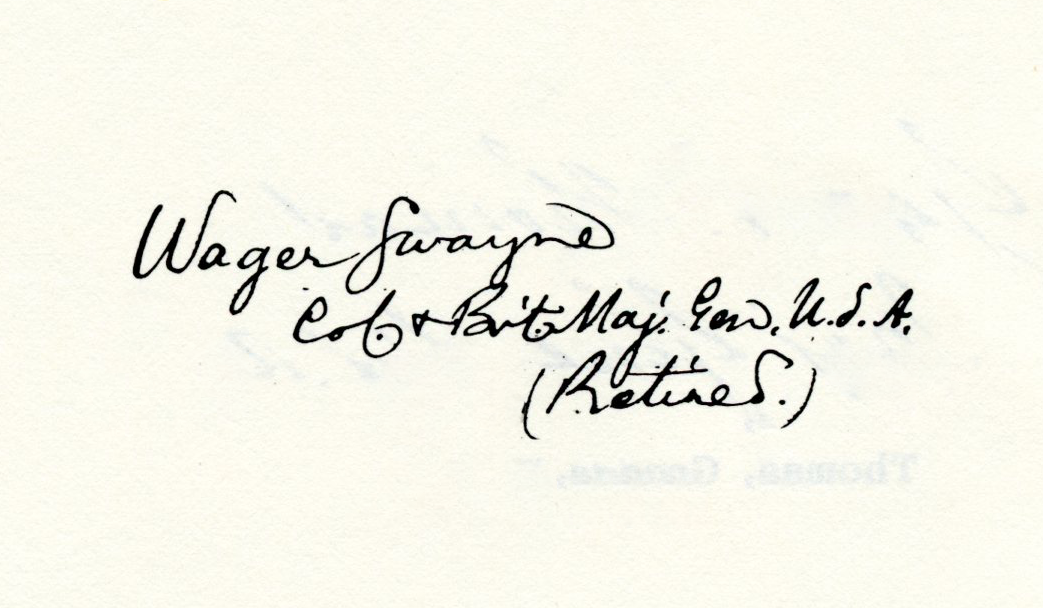 Wager Swayne
Col & Bvt. Maj. Gen. U.S.A.
(Retired.)